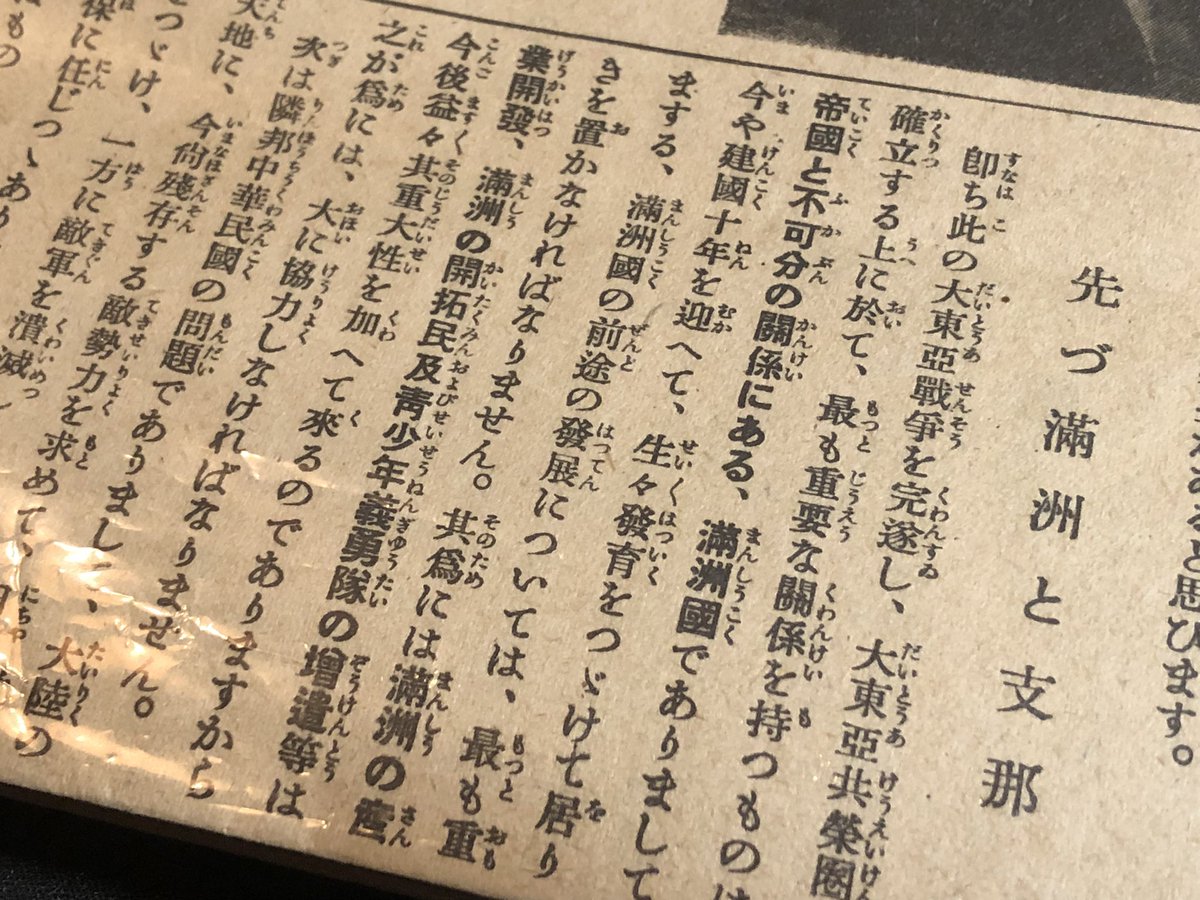 思ひます。
先づ滿洲と支那
卽ち此の大東亞戰爭を完遂し、大東亞共榮圈
確立する上に於て、最も重要な關係を持つものは
帝國と不可分の關係にある、滿洲國でありまして
今や建國十年を迎へて、生々發育をつゞけて居り
まする、滿洲國の前途の發展については、最も重
きを置かなければなりません。其爲には滿洲の產
業開發、滿洲の開拓民及靑少年義勇隊の增遣等は
今後益々其重大性を加へて來るのでありますから
之が爲には、大に協力しなければなりません。
次は隣邦中華民國の問題でありまして、大陸の
天地に、今尙殘存する敵勢力を求めて、
つゞけ、一方に敵軍を潰滅し
保に任じつゝあり
もの